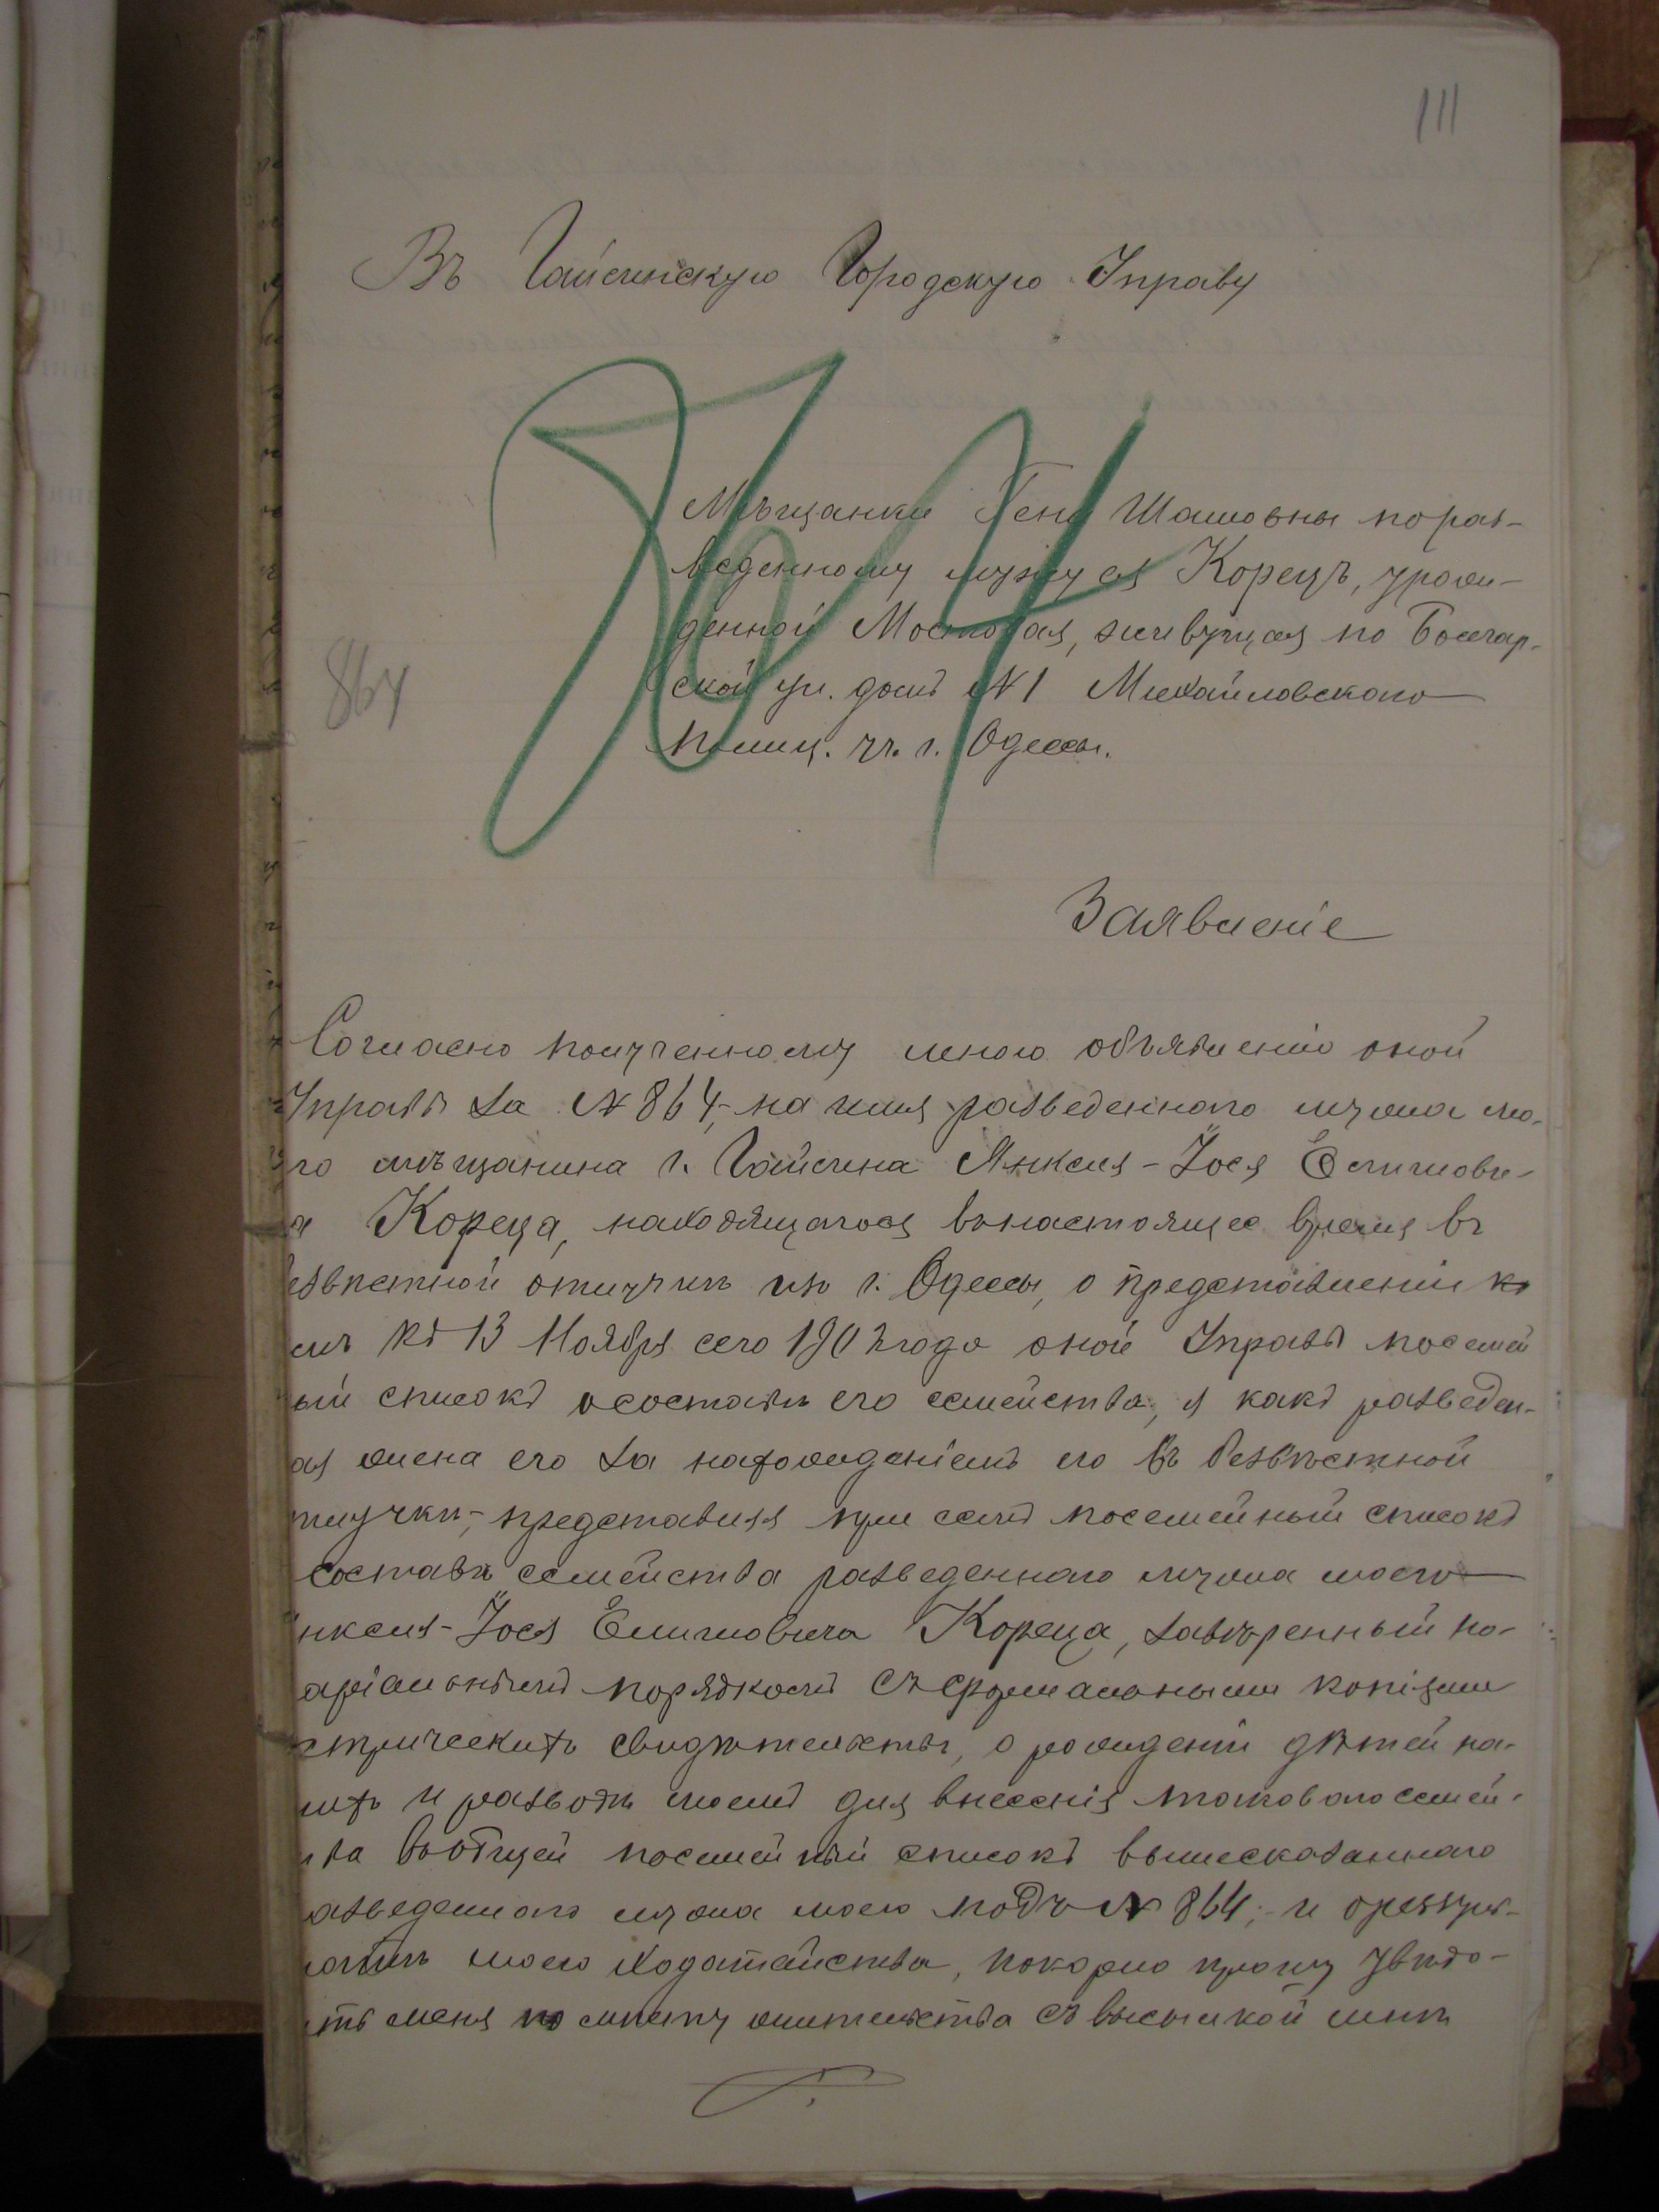 111
Въ Гайсинскую Городскую Управу
Мѣщанки Гени Шамовны пораз-
веденному мужу ея Корецъ, урож-
денной Мостовая, живущая по Болгар-
ской ул. домъ №1 Михайловскаго
864
полиц. уч. г. Одессы.
Заявленіе
Согласно полученному мною объявленію оной
Управы за № 864, на имя разведеннаго мужа мо-
го мѣщанина г. Гайсина Янкеля-Іося Елимови-
а Кореца, находящагося внастоящее время въ
езвѣстной отлучкѣ изъ г. Одессы, о представленіи к
къ 13 Ноября сего 1902 года оной Управѣ посемей
ый списокъ осоставѣ его семейства, я какъ разведен-
ая жена его за нахожденіемъ его въ безвѣстной
тлучки,- представляя при семъ посемейный списокъ
составѣ семейства разведеннаго мужа моего
нкеля-Іося Елимовича Кореца, завѣренный но-
аріальнымъ порядкомъ съ формальными копіями
етрическихъ свидѣтельствъ, о рожденіи дѣтей на-
ихъ и разводѣ моемъ для внесенія таковаго семей-
тва въобщей посемейный списокъ вышесказаннаго
азведеннаго мужа моего подъ № 864; и о резуль-
атѣ моего ходатайства, покорно прошу увѣдо-
ть меня по мѣсту жительства съ высылкой мнѣ